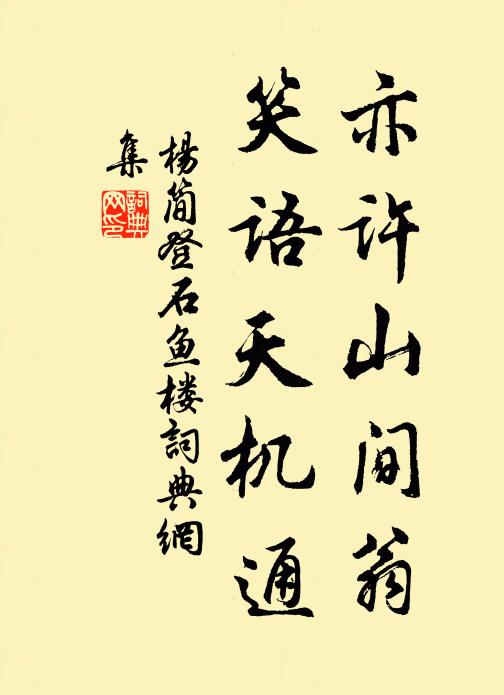 亦许山间翁
笑语天机通
楊简登石鱼楼詞典網
集
詞典
网印